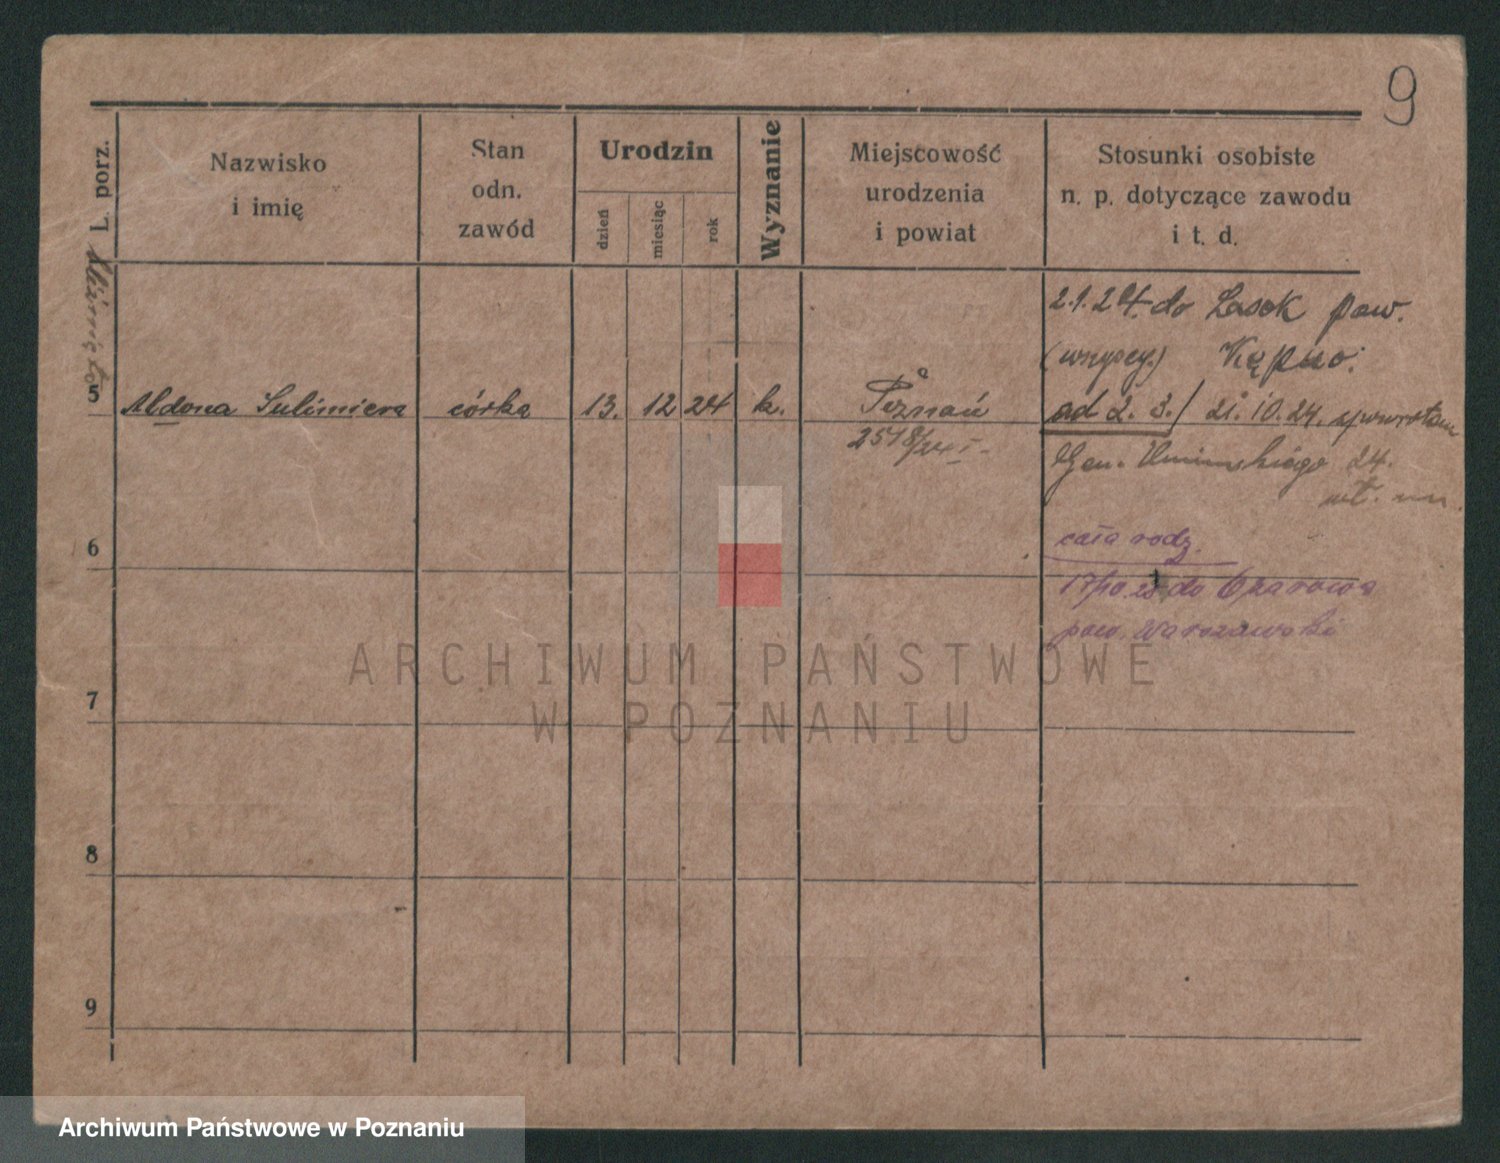 9
L. porz.
Nazwisko
i imię
Stan
odn.
zawód
Urodzin
dzień
miesiąc
rok
Wyznanie
Miejscowość
urodzenia
i powiat
Stosunki osobiste
n. p. dotyczące zawodu
i t. d.
2.1.24. do Lasek pow.
(wszyscy.) Kępno.
5 Aldona Sulimiera córka 13. 12 24 k. Poznań ad 2. 3./ 21.10.24. spowrotem
2518/24 I.
Gen. Umińskiego 24.
cała rodz.
6
17/10.25 do Ożarowa
pow. Warszawski
ARCHIWUM PAŃSTWOWE
W POZNANIU
7
8
9
Archiwum Państwowe w Poznaniu